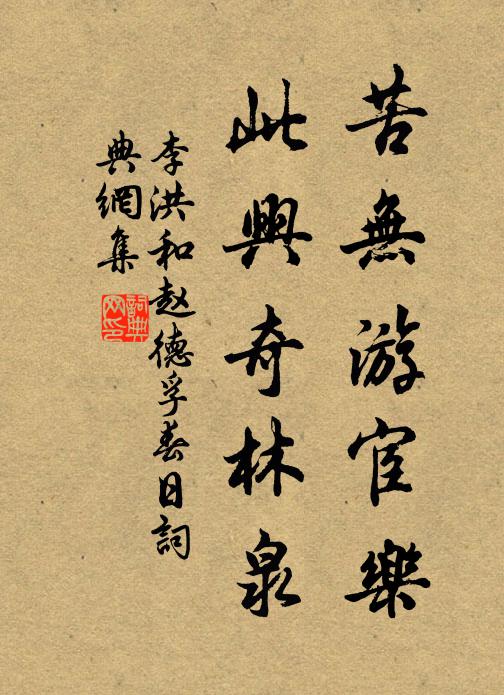 苦無游宦樂
此興奇林泉
李洪和赵德孚春日詞
典網集
詞典
网印